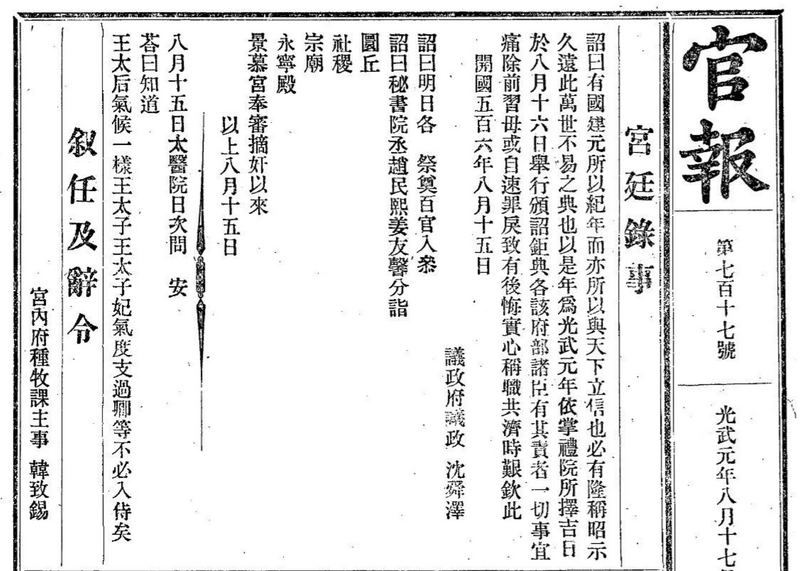 官報
第七百十七號
光武元年八月十七
宮廷錄事
詔曰有國建元所以紀年而亦所以與天下立信也必有隆稱昭示
久遠此萬世不易之典也以是年爲光武元年依掌禮院所擇吉日
於八月十六日舉行頒詔鉅典各該府部諸臣有其責者一切事宜
痛除前習毋或自速罪戾致有後悔實心稱職共濟時艱欽此
開國五百六年八月十五日
議政府議政 沈舜澤
詔曰明日各 祭奠百官入叅
詔曰秘書院丞趙民熙姜友馨分詣
圜丘
社稷
宗廟
永寧殿
景慕宮奉審摘奸以來
以上八月十五日
八月十五日太醫院日次問 安
荅曰知道
王太后氣候一樣王太子王太子妃氣度支過卿等不必入侍矣
叙任及辭令
宮內府種牧課主事 韓致錫